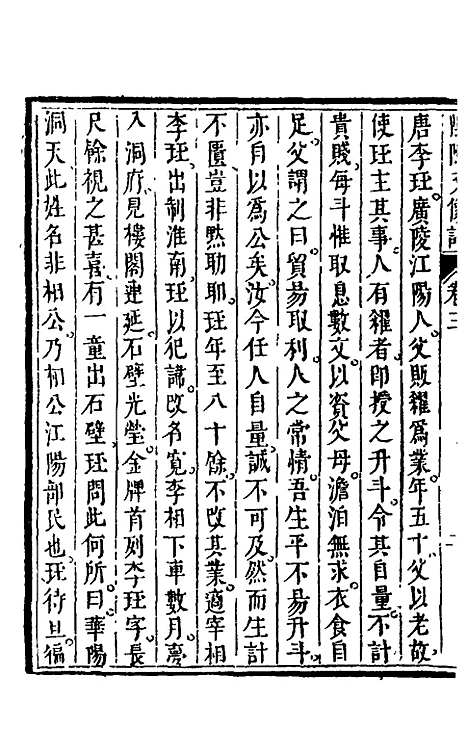 陰隲文像註 卷三
唐李珏。廣陵江陽人。父販糴爲業。年五十。父以老故
使珏主其事。人有糴者。即授之升斗。令其自量。不計
貴賤。每斗惟取息數文。以資父母。澹泊無求。衣食自
足。父謂之曰。貿易取利。人之常情。吾生平不易升斗。
亦自以爲公矣。汝今任人自量。誠不可及。然而生計
不匱。豈非黙助耶。珏年至八十餘。不改其業。適宰相
李珏。出制淮南。珏以犯諱。改名寛。李相下車數月。夢
入洞府。見樓閣連延。石壁光瑩。金牌首列李珏。字長
尺餘。視之甚喜。有一童出石壁。珏問此何所。曰華陽
洞天。此姓名非相公。乃相公江陽部民也。珏待旦徧